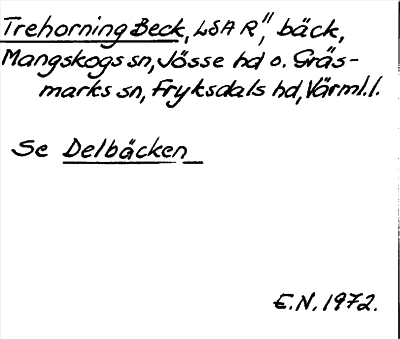 Trehorning Beck, LSA R", bäck,
Mangskogs sn, Jösse hd o. Gräs-
marks sn, Fryksdals hd, Värml.l.
Se Delbäcken
E.N. 1972.